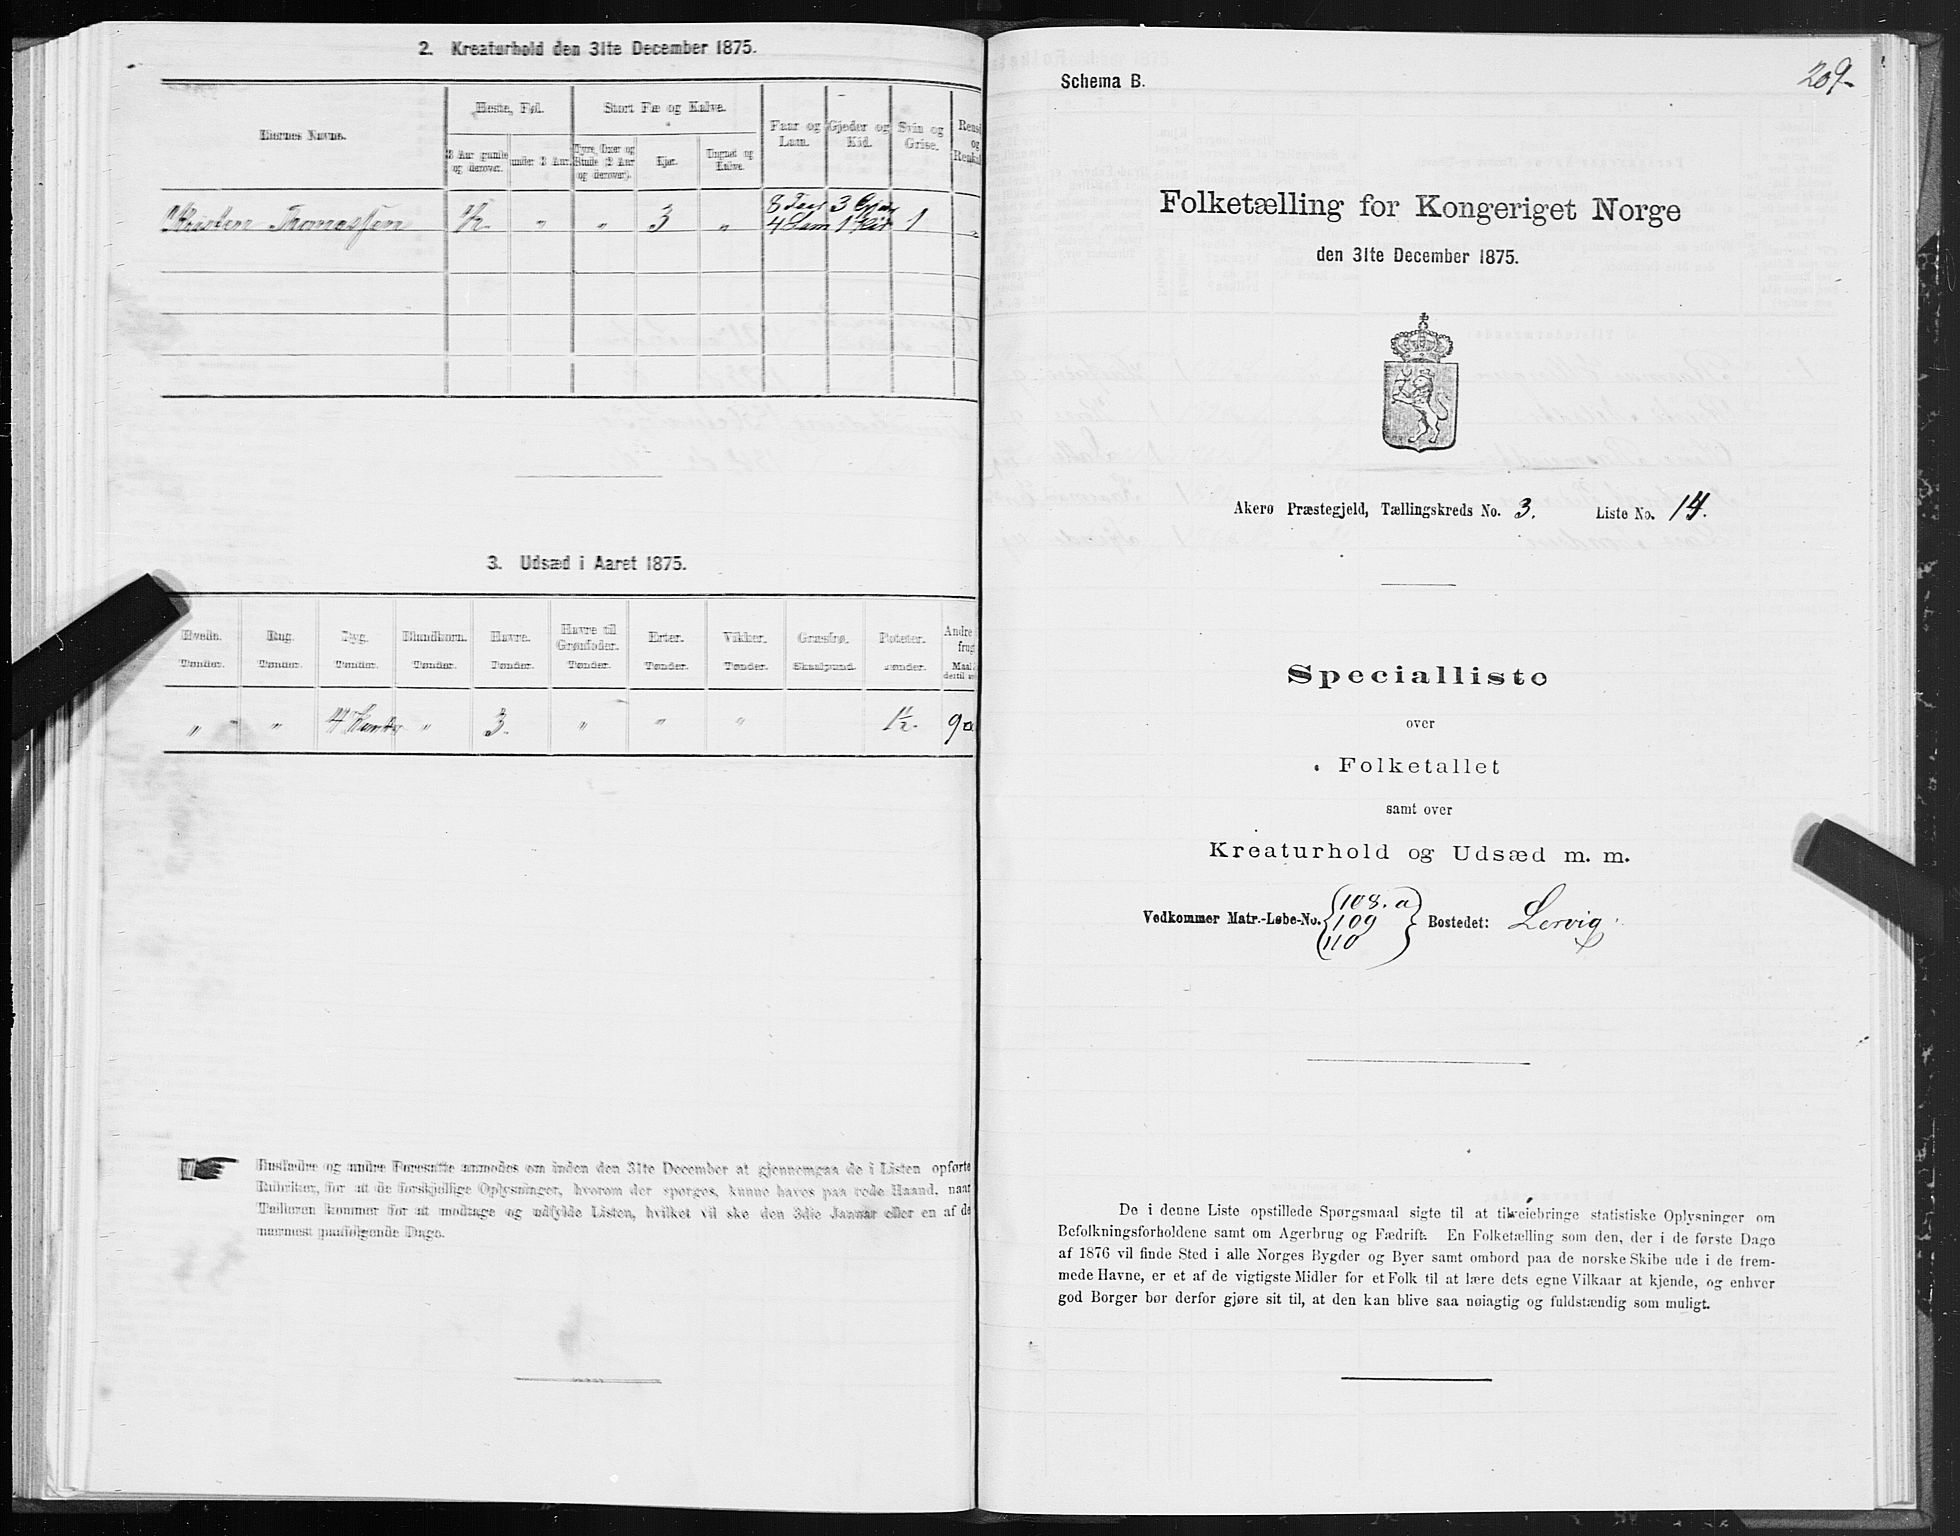 2. Kreaturhold den 31te December 1875.
Eiernes Navne.
Heste, Føl.
Stort Fæ og Kalve.
Faar og Lam.
Gjeder og Kid.
Svin og Grise.
Rensd
og
Renkal
3 Aar gamle og derover.
under 3 Aar.
Tyre, Oxer og Stude (2 Aar og derover).
Kjør.
Ungnøt og Kalve.
Kristen Thomassen 1/2 " " 3 " 8 Feer 4 Lam 3 Gjed 1 Kid 1 "
3. Udsæd i Aaret 1875.
Hvede. Rug. Byg. Blandkorn. Havre. Havre til Grønfoder. Erter. Vikker. Græsfrø. Poteter. Andre frug
Tønder. Tønder. Tønder. Tønder. Tønder. Tønder. Tønder. Tønder. Skaalpund. Tønder. Maal
" " 4 " 3. " " " 1 1/2.
Husfædre og andre Foresatte anmodes om inden den 31te December at gjennemgaa de i Listen opførte
Rubriker, for at de forskjellige Oplysninger, hvorom der spørges, kunne haves paa rede Haand, naar
Tælleren kommer for at modtage og udfylde Listen, hvilket vil ske den 3die Januar eller en af de
nærmest paafølgende Dage.
209.
Schema B.
Folketælling for Kongeriget Norge
den 31te December 1875.
Akerø Præstegjeld, Tællingskreds No. 3. Liste No. 14.
Specialliste
over
Folketallet
samt over
Kreaturhold og Udsæd m. m.
Vedkommer Matr.-Løbe-No. { 108. a 109 110 } Bostedet: Lervig.
De i denne Liste opstillede Spørgsmaal sigte til at tilveiebringe statistiske Oplysninger om
Befolkningsforholdene samt om Agerbrug og Fædrift. En Folketælling som den, der i de første Dage
af 1876 vil finde Sted i alle Norges Bygder og Byer samt ombord paa de norske Skibe ude i de frem-
mede Havne, er et af de vigtigste Midler for et Folk til at lære dets egne Vilkaar at kjende, og enhver
god Borger bør derfor gjøre sit til, at den kan blive saa nøiagtig og fuldstændig som muligt.